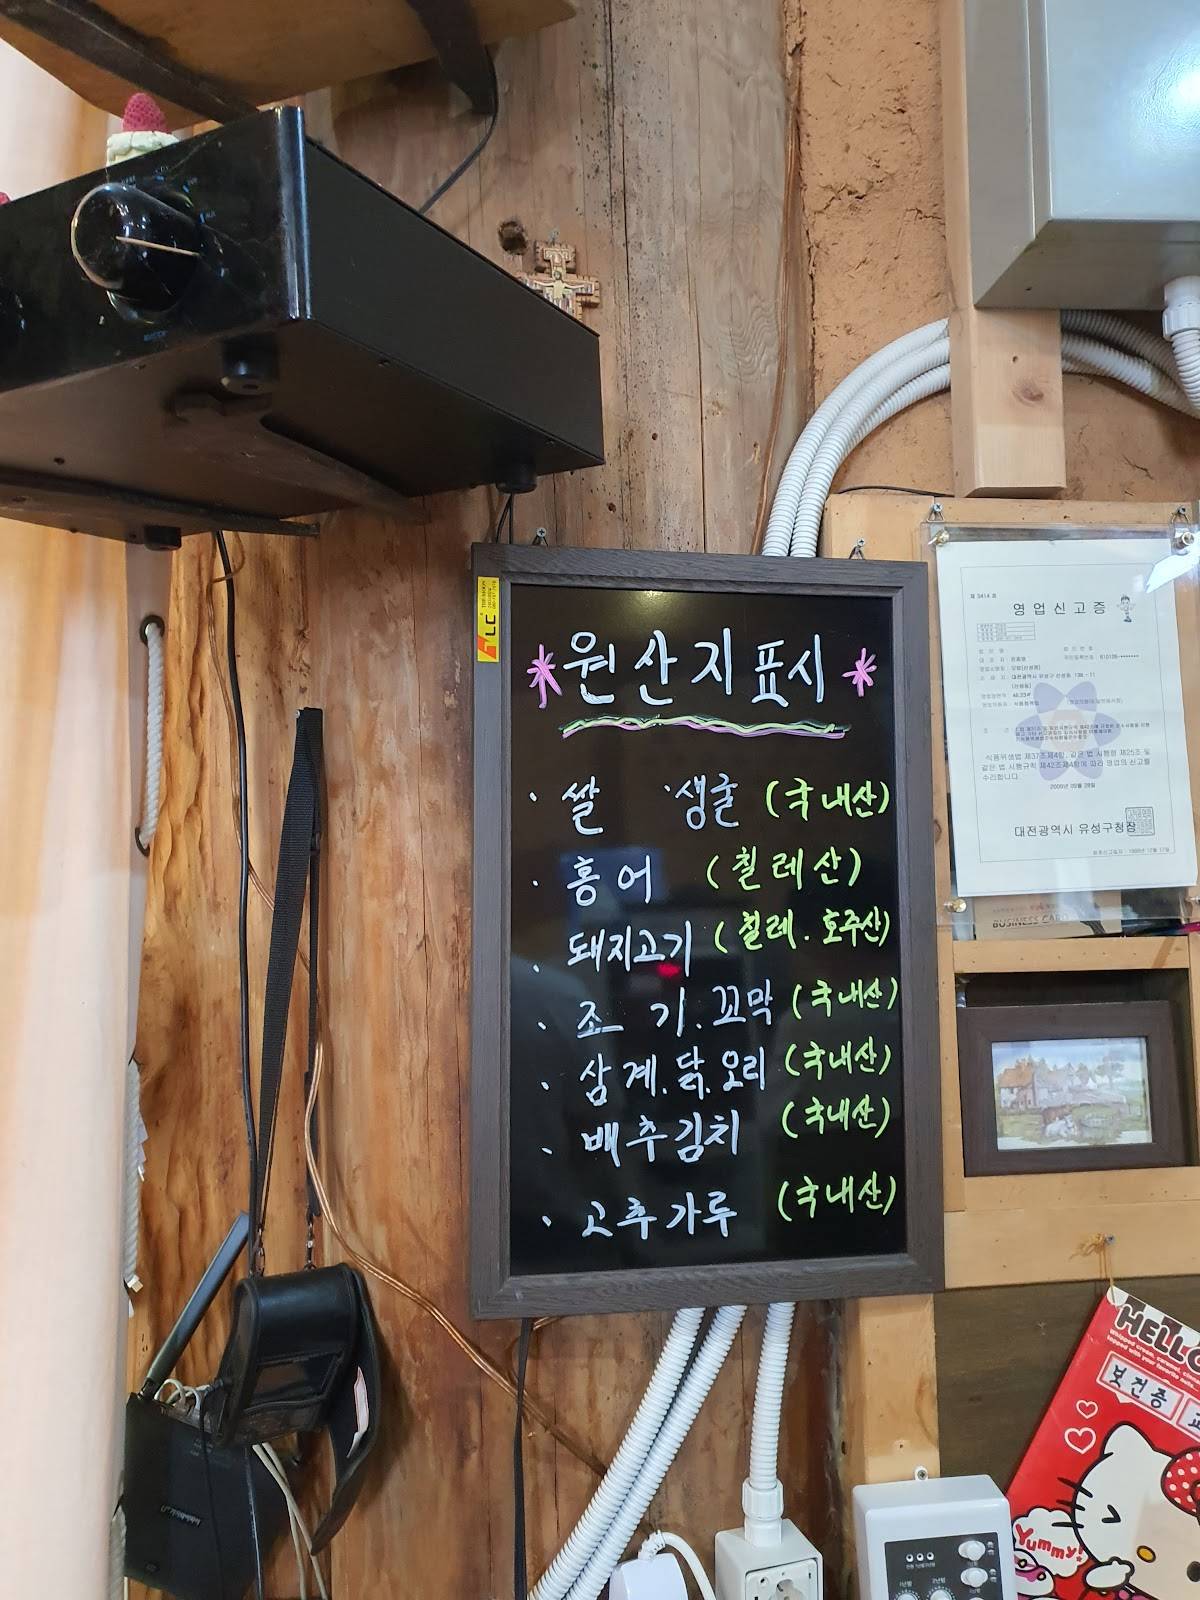 *원산지표시*
· 쌀 ·생굴 (국내산)
· 홍어 (칠레산)
· 돼지고기 (칠레. 호주산)
· 조기. 꼬막 (국내산)
· 삼계. 닭. 오리 (국내산)
· 배추김치 (국내산)
· 고추가루 (국내산)
제 3414 호
영업신고증
식품위생법 제37조제4항, 같은 법 시행령 제25조 및
같은 법 시행규칙 제42조제4항에 따라 영업의 신고를
수리합니다.
2009년 05월 28일
대전광역시 유성구청장
BUSINESS CARD
HELLO
Whipped cream, caramel,
topped with your favorite
보건증
Yummy!